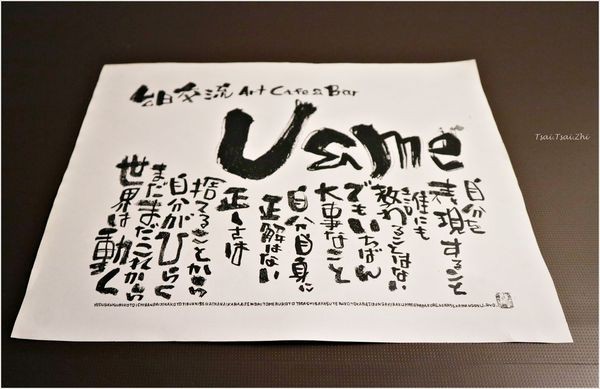 台日交流 Art Cafe & Bar
U&me
自分を
表現すること
誰にも
教わることはない
でもいちばん
大事なこと
自分自身に
正解はない
正しさは
捨てることから
自分がひらく
まだまだこれから
世界は動く
Tsai.Tsai.Zhi